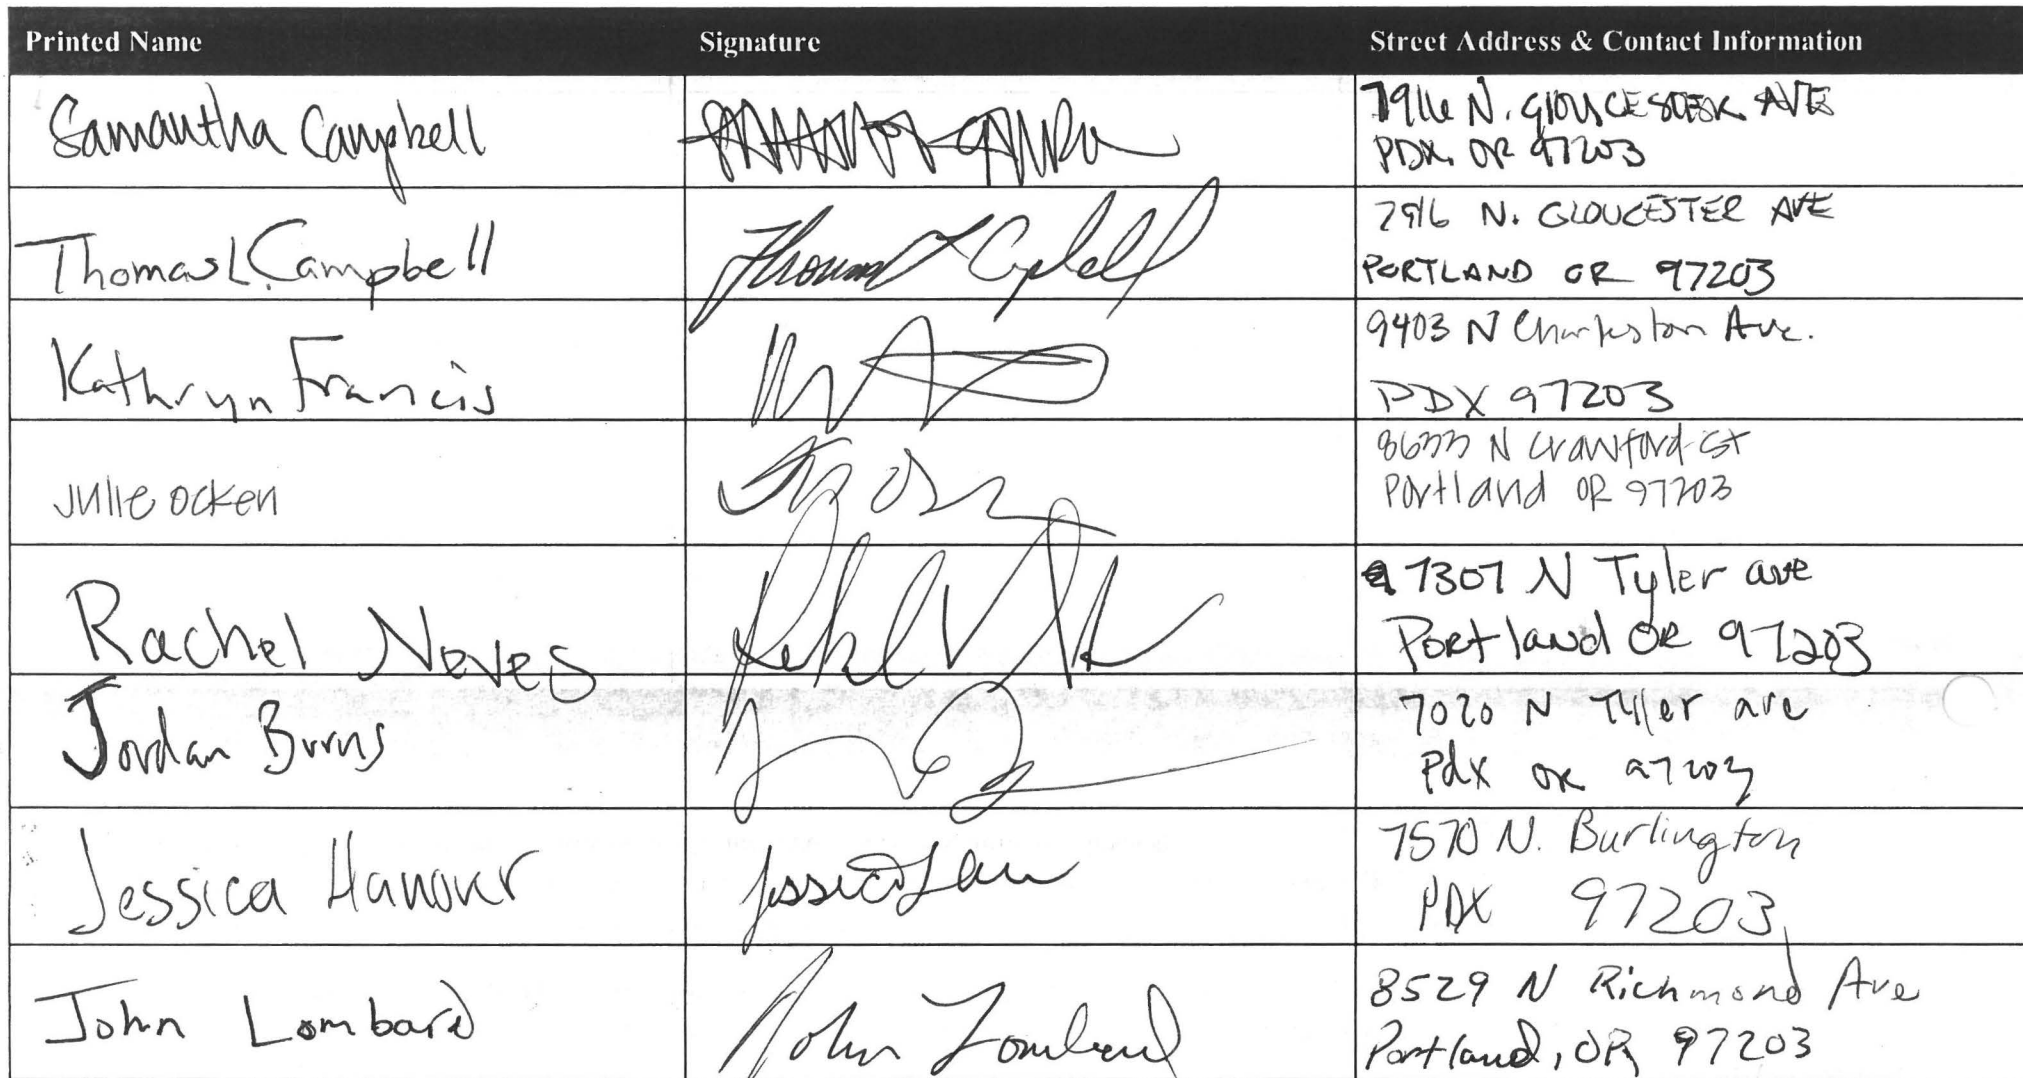 Printed Name Signature Street Address & Contact Information
Samantha Campbell 7916 N. GLOUCESTER AVE
PDX, OR 97203
Thomas L. Campbell Thomas L Campbell 7916 N. GLOUCESTER AVE
PORTLAND OR 97203
Kathryn Francis 9403 N Charleston Ave.
PDX 97203
Julie Ocken 8633 N Crawford St
Portland OR 97203
Rachel Neves 7307 N Tyler ave
Portland OR 97203
Jordan Burns 7020 N Tyler ave
Pdx OR 97203
Jessica Hanover Jessica 7570 N. Burlington
PDX 97203
John Lombard John Lombard 8529 N Richmond Ave
Portland, OR 97203